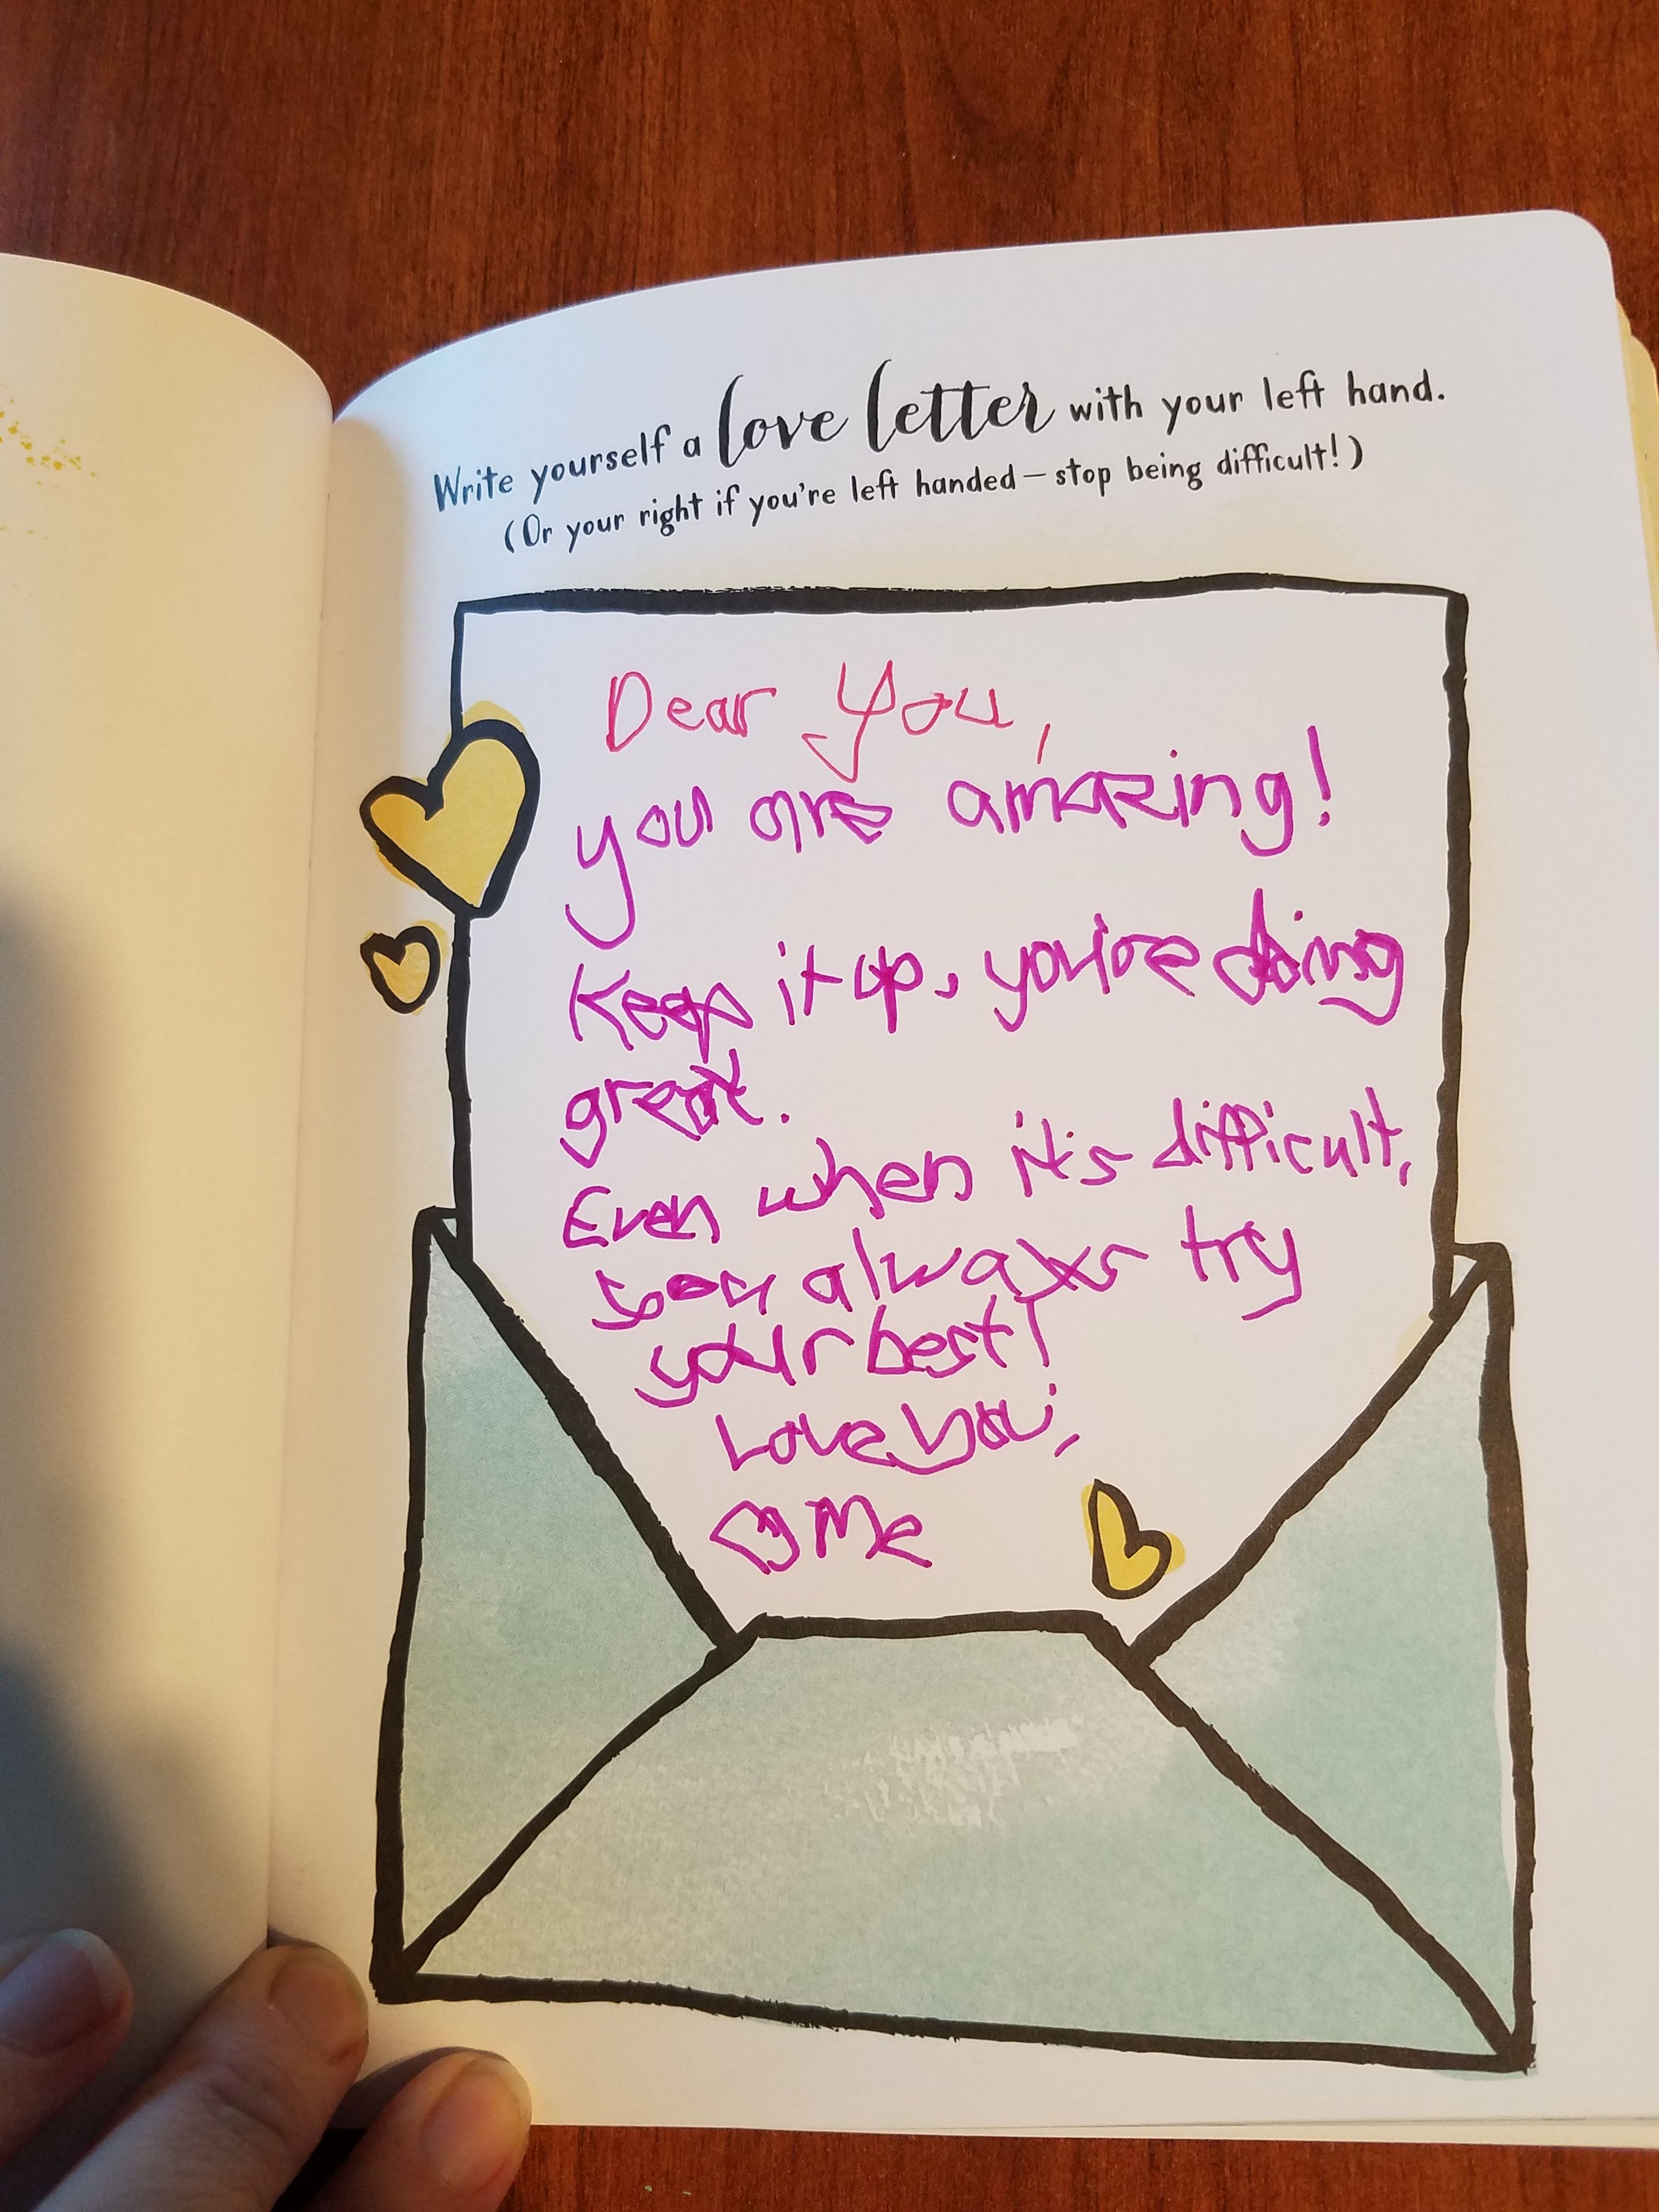 Write yourself a love letter with your left hand.
(Or your right if you're left handed – stop being difficult!)
Dear You,
you are amazing!
Keep it up, you're doing
great.
Even when it's difficult,
you always try
your best!
Love you,
♡ Me